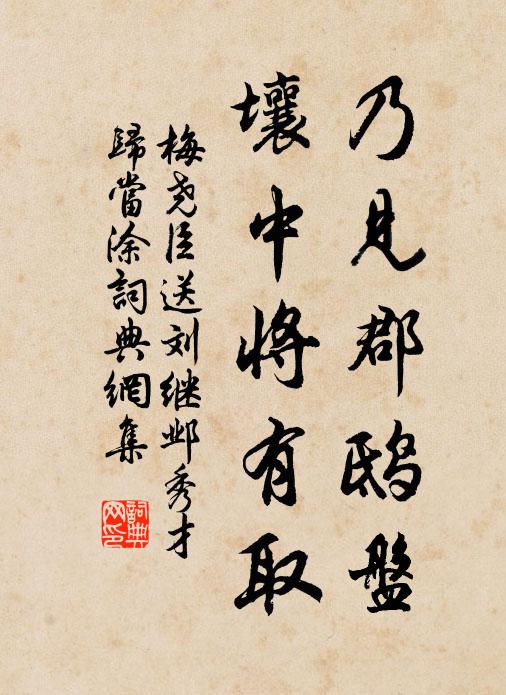 乃见郡鸱盤
壤中将有取
梅尧臣送刘继邺秀才
歸當涂詞典網集
詞典网印